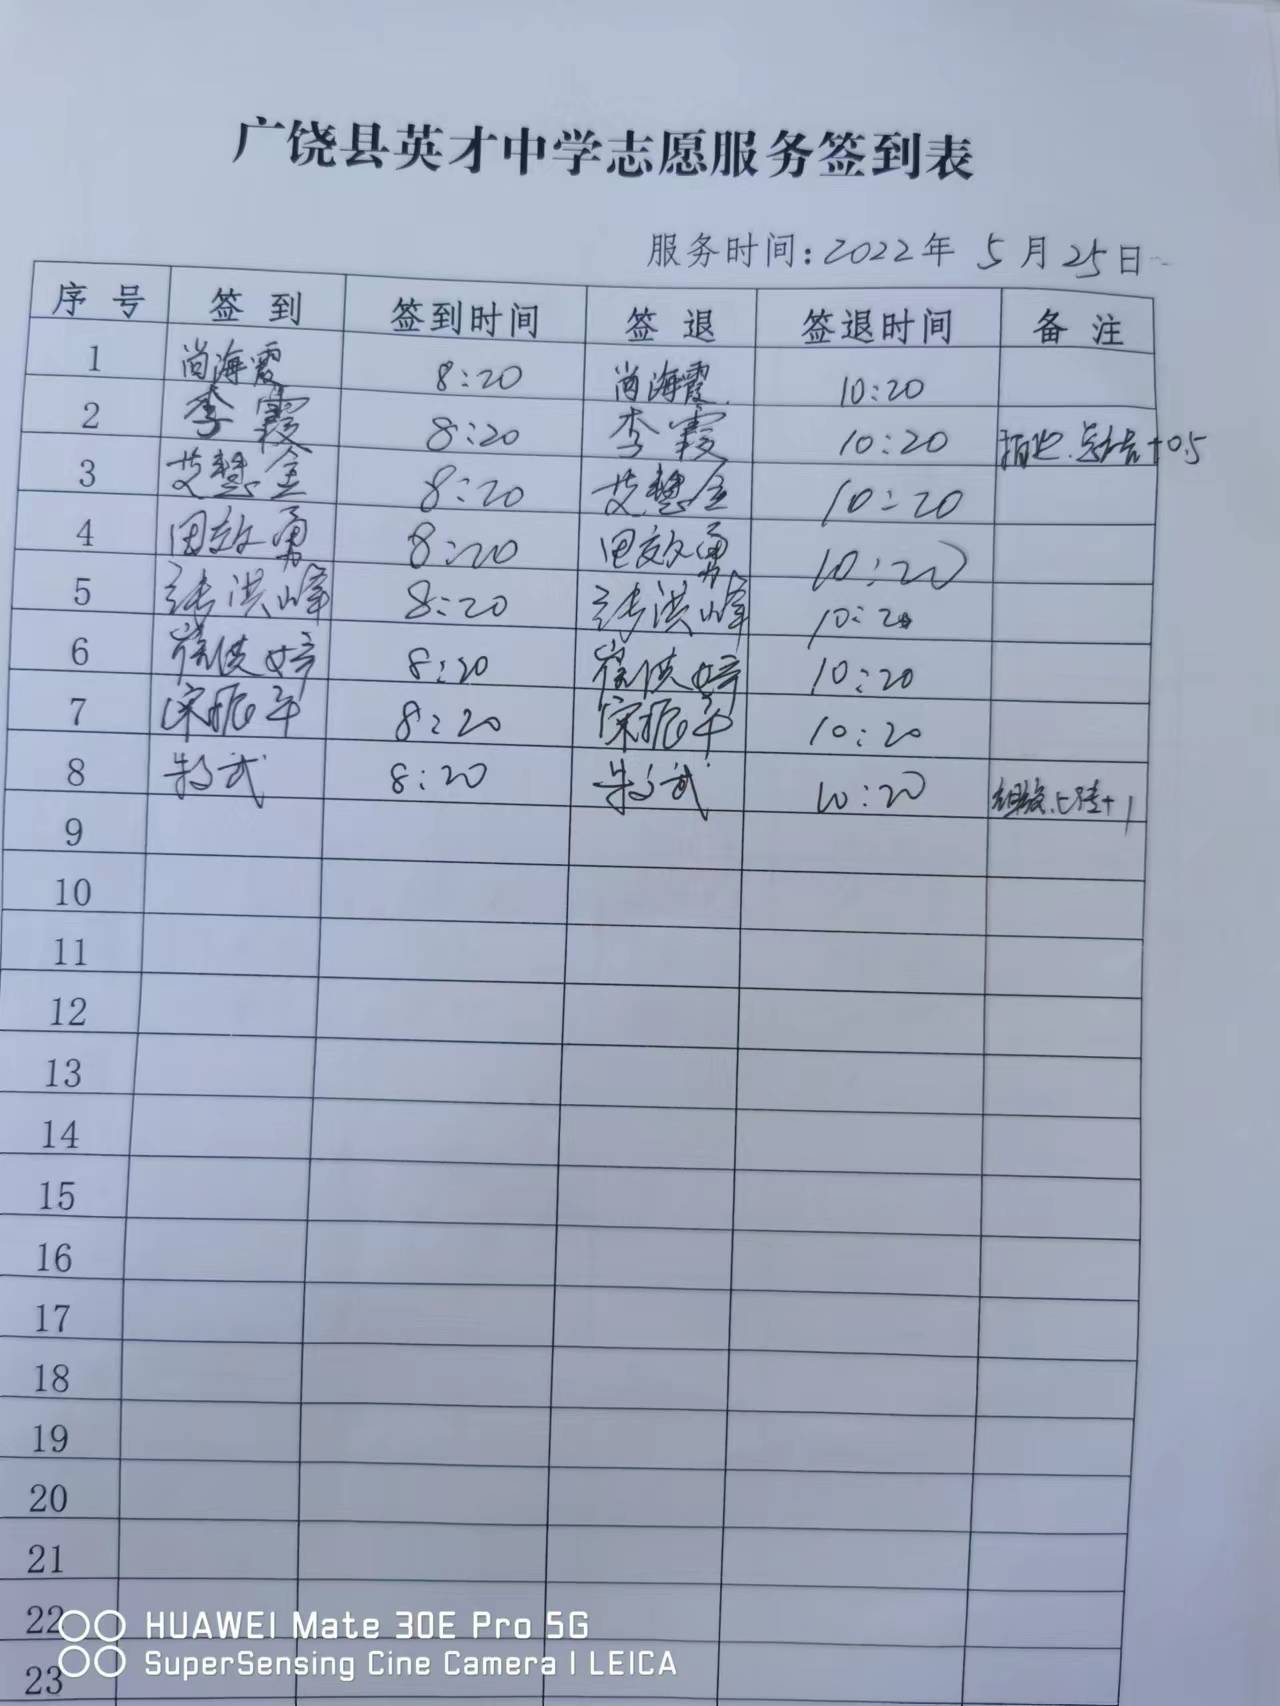 广饶县英才中学志愿服务签到表
服务时间:2022年 5月25日
序号 签到 签到时间 签退 签退时间 备注
1 尚海霞 8:20 尚海霞 10:20
2 李霞 8:20 李霞 10:20 +0.5
3 艾慧金 8:20 艾慧金 10:20
4 田效勇 8:20 田效勇 10:20
5 张洪峰 8:20 张洪峰 10:20
6 崔洪婷 8:20 崔洪婷 10:20
7 宋振军 8:20 宋振军 10:20
8 朱武 8:20 10:20 +1
9
10
11
12
13
14
15
16
17
18
19
20
21
22
23
HUAWEI Mate 30E Pro 5G
SuperSensing Cine Camera | LEICA